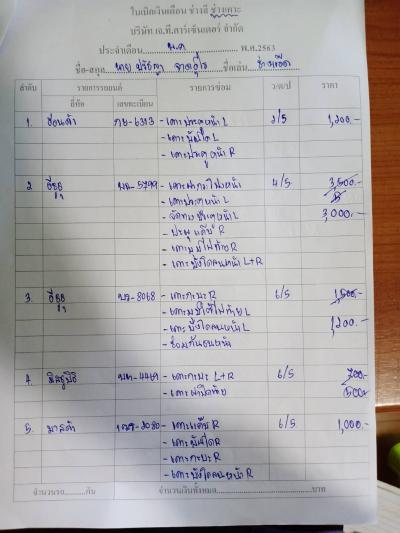 ใบเบิกเงินเดือน ช่างสี ช่างเคาะ
บริษัท เจ.ที.คาร์เซ็นเตอร์ จำกัด
ประจำเดือน พ.ค. พ.ศ.2563
ชื่อ-สกุล นาย ชื่อเล่น
ลำดับ รายการรถยนต์ รายการซ่อม ว/ด/ป ราคา
ยี่ห้อ เลขทะเบียน
1. ฮอนด้า -6313 -เคาะประตูหน้า L 2/5 1,200.-
-เคาะบันได L
-เคาะประตูหน้า R
2 อีซูซุ -5799 -เคาะฝากระโปรงหน้า 4/5 3,500.-
-เคาะประตูหน้า L
3,000.-
-เคาะมุมไฟท้าย R
-เคาะบังโคลนหน้า L+R
3. อีซูซุ -8068 -เคาะกะบะ R 6/5 1,500.-
-เคาะมุมใต้ไฟท้าย L
-เคาะบังโคลนหน้า L 1,200.-
-ซ่อมกันชนหน้า
4. มิตซูบิชิ -4469 -เคาะกะบะ L+R 6/5 700.-
-เคาะฝาปิดท้าย 500.-
5. มาสด้า -3080 -เคาะแก้ม R 6/5 1,000.-
-เคาะบันได R
-เคาะกะบะ R
-เคาะบังโคลนหน้า R
จำนวนรถ........คัน จำนวนเงินทั้งหมด........บาท